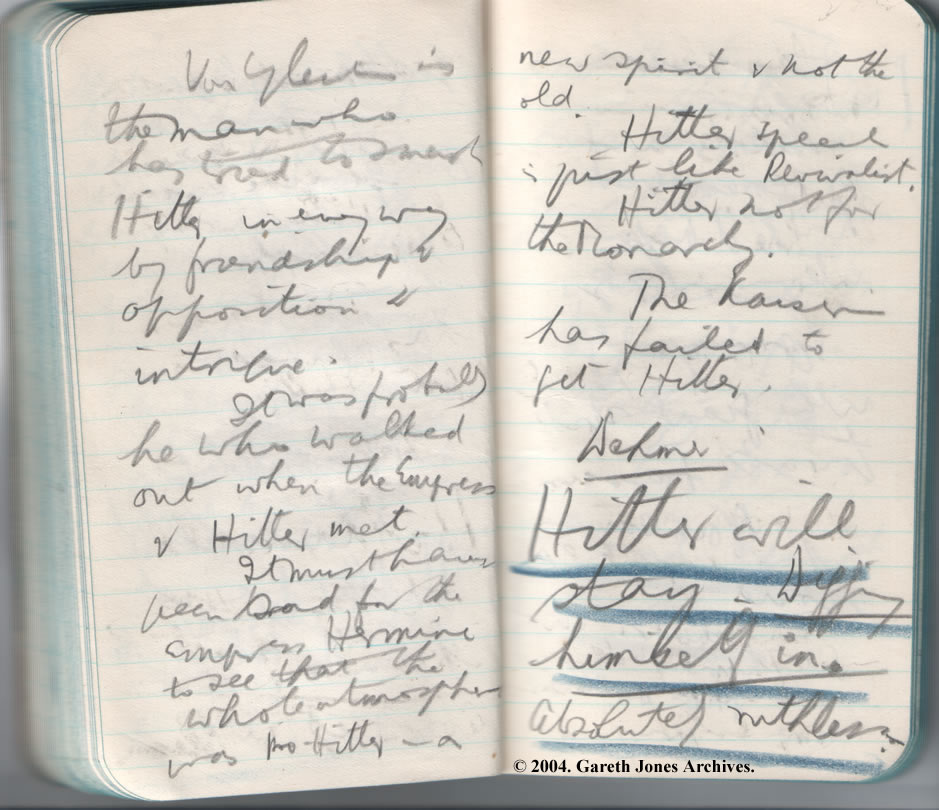 Von
is
the man who
has tried to smash
Hitler in every way
by friendship &
opposition &
intrigue.
It was probably
he who walked
out when the Empress
& Hitler met.
It must have
been bad for the
empress Hermine
to see that the
whole atmosphere
was pro-Hitler – a
new spirit & not the
old.
Hitler speech
is just like Revivalist.
Hitler not for
the Monarchy.
The Kaiser
has failed to
get Hitler.
Hitler will
stay. Digging
himself in.
Absolutely ruthless.
© 2004. Gareth Jones Archives.